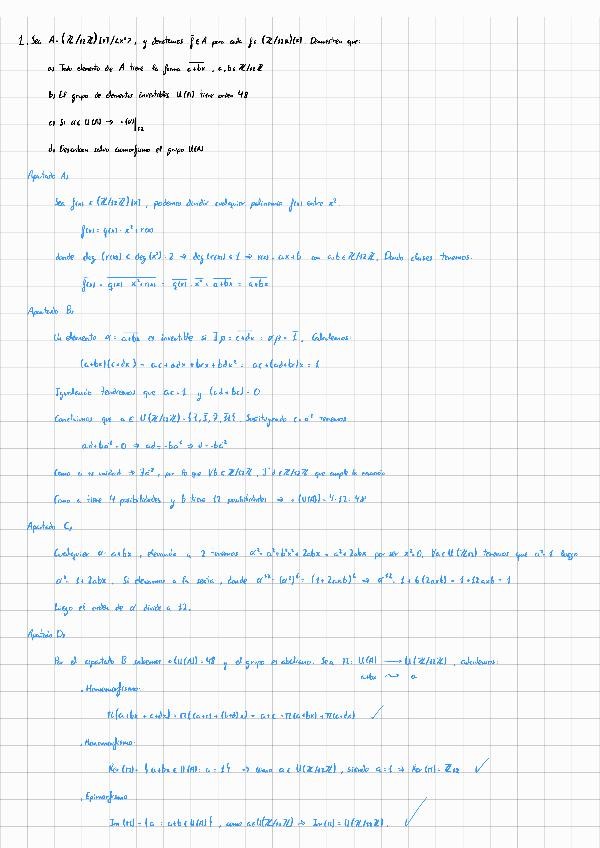 1. Sea A = (Z/12Z)[x]/<x²>, y denotemos f̄ ∈ A para cada f ∈ (Z/12Z)[x]. Demuestren que:
a) Todo elemento de A tiene la forma a+bx, a,b ∈ Z/12Z
b) El grupo de elementos invertibles U(A) tiene orden 48
c) Si α ∈ U(A) → o(α)|12
d) Describan salvo isomorfismo el grupo U(A)
Apartado A:
Sea f(x) ∈ (Z/12Z)[x], podemos dividir cualquier polinomio f(x) entre x².
f(x) = q(x) · x² + r(x)
donde deg (r(x)) < deg (x²) = 2 → deg (r(x)) ≤ 1 → r(x) = ax+b con a,b ∈ Z/12Z. Dando clases tenemos:
f(x) = q(x) · x² + r(x) = q(x) · x² + a+bx = a+bx
Apartado B:
Un elemento α = a+bx es invertible si ∃ β = c+dx : αβ = 1. Calculemos:
(a+bx)(c+dx) = ac + adx + bcx + bdx² = ac + (ad+bc)x = 1
Igualando tendremos que ac = 1 y (ad+bc) = 0
Concluimos que a ∈ U(Z/12Z) = {1, 5, 7, 11}. Sustituyendo c = a⁻¹ tenemos
ad + ba⁻¹ = 0 → ad = -ba⁻¹ → d = -ba⁻²
Como a es unidad → ∃a⁻¹, por lo que ∀b ∈ Z/12Z, ∃ d ∈ Z/12Z que cumple la ecuación
Como a tiene 4 posibilidades y b tiene 12 posibilidades → o(U(A)) = 4·12 = 48
Apartado C:
Cualquier α = a+bx, elevando a 2 tenemos α² = a² + b²x² + 2abx = a² + 2abx por ser x² = 0. ∀a ∈ U(Z/12Z) tenemos que a² = 1 luego
α² = 1 + 2abx. Si elevamos a la sexta, donde α¹² = (α²)⁶ = (1+2axb)⁶ → α¹² = 1 + 6(2axb) = 1 + 12axb = 1
Luego el orden de α divide a 12.
Apartado D:
Por el apartado B sabemos o(U(A)) = 48 y el grupo es abeliano. Sea π: U(A) → U(Z/12Z), calculemos:
a+bx ⇝ a
. Homomorfismo:
π(a+bx + c+dx) = π((a+c) + (b+d)x) = a+c = π(a+bx) + π(c+dx) ✓
. Monomorfismo:
Ker(π) = {a+bx ∈ U(A): a = 1} → como a ∈ U(Z/12Z), siendo a = 1 → Ker(π) = Z₁₂ ✓
. Epimorfismo
Im(π) = {a : a+b ∈ U(A)}, como a ∈ U(Z/12Z) → Im(π) = U(Z/12Z). ✓